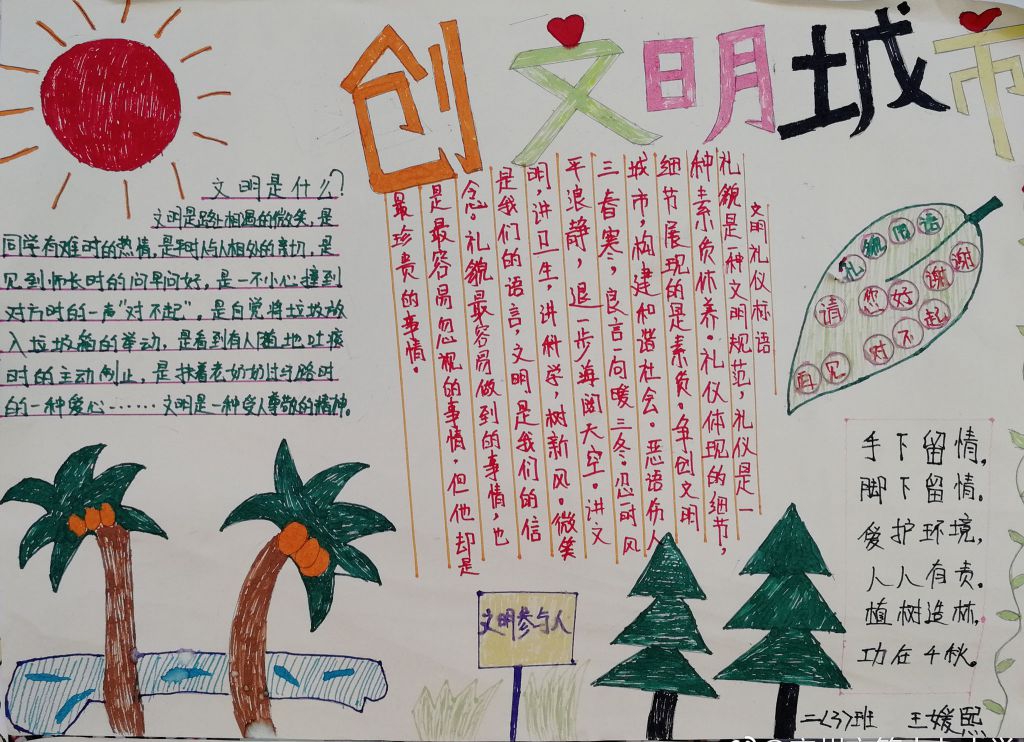 创文明城市
文明是什么?
文明是路上相遇的微笑,是
同学有难时的热情,是平时与人相处的亲切,是
见到师长时的问早问好,是一不小心撞到
对方时的一声"对不起",是自觉将垃圾放
入垃圾箱的举动,是看到有人随地吐痰
时的主动制止,是扶着老奶奶过马路时
的一种爱心……文明是一种受人尊敬的精神。
文明礼仪标语
礼貌是一种文明规范,礼仪是一
种素质休养。礼仪体现的细节,
细节展现的是素质。争创文明
城市,构建和谐社会。恶语伤人
三春寒,良言一句暖三冬。忍一时风
平浪静,退一步海阔天空。讲文
明,讲卫生,讲科学,树新风。微笑
是我们的语言,文明是我们的信
念。礼貌最容易做到的事情,也
是最容易忽视的事情,但他却是
最珍贵的事情。
礼貌用语
请 您好 谢谢
对不起
再见
手下留情,
脚下留情。
爱护环境,
人人有责。
植树造林,
功在千秋。
文明参与人
二(3)班 王媛熙